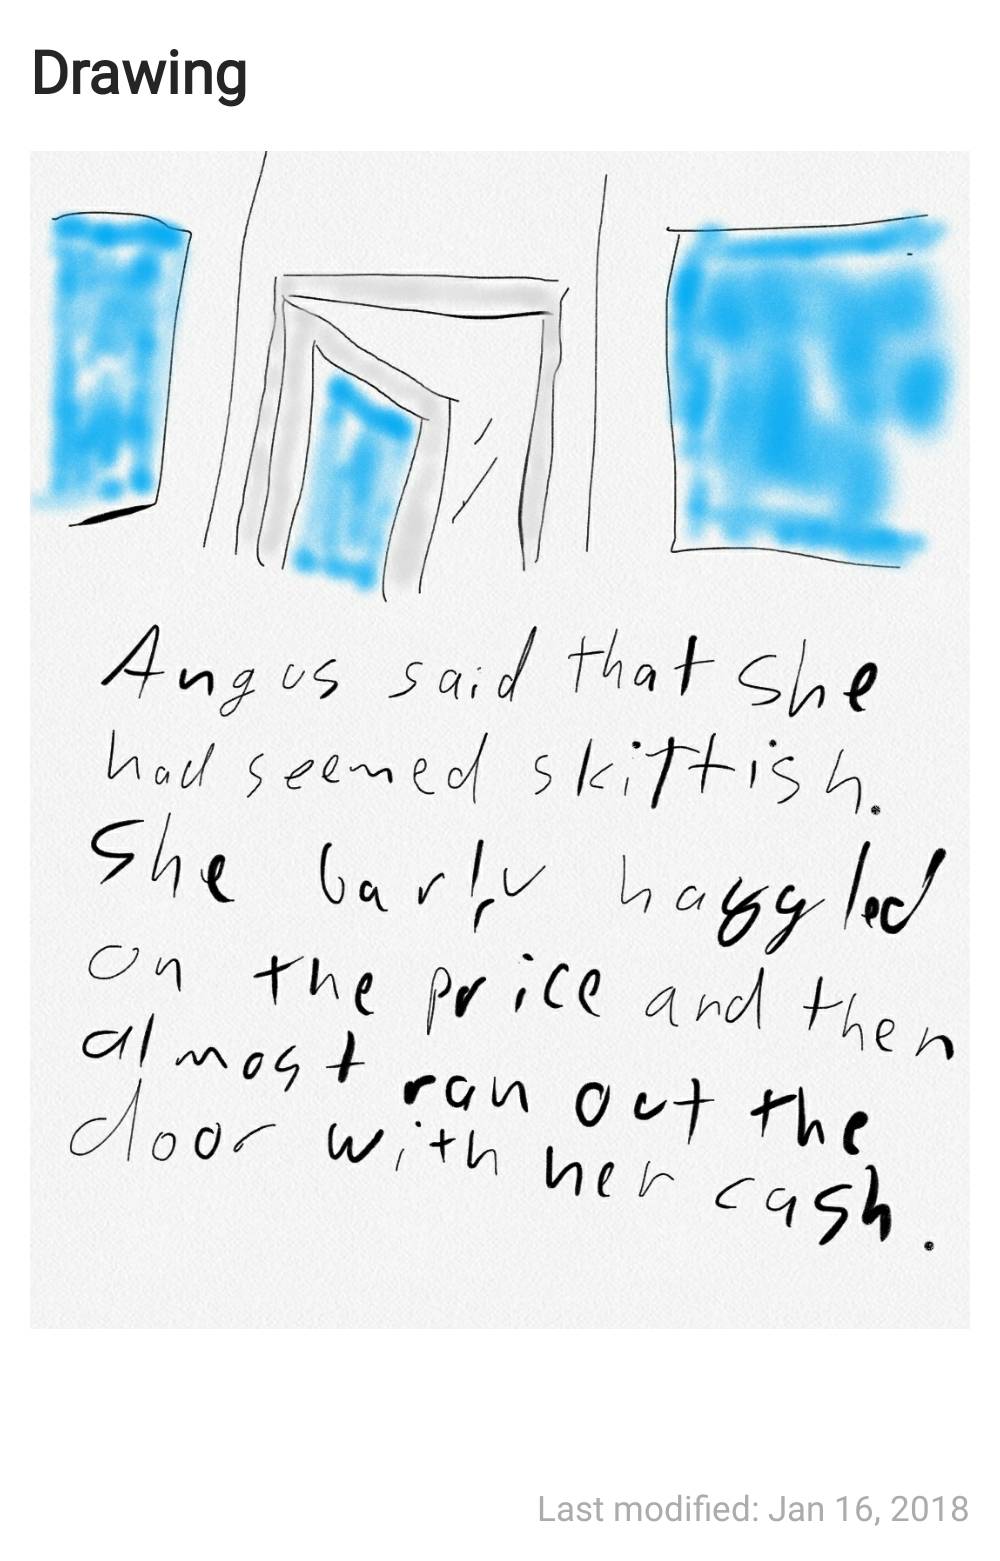 Drawing
Angus said that she
had seemed skittish.
She barly haggled
on the price and then
almost ran out the
door with her cash.
Last modified: Jan 16, 2018